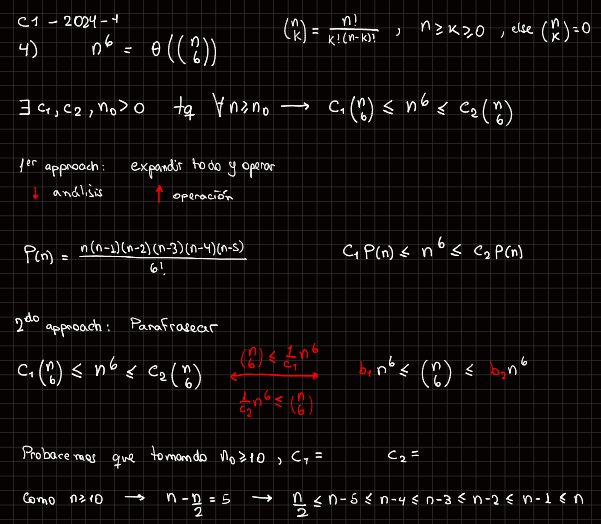 C1 - 2024-1
(n k) = n! / k!(n-k)! , n ≥ k ≥ 0 , else (n k) = 0
4) n^6 = θ((n 6))
∃ c₁, c₂, n₀ > 0 tq ∀ n ≥ n₀ → C₁(n 6) ≤ n^6 ≤ C₂(n 6)
1er approach: expandir todo y operar
↓ análisis ↑ operación
P(n) = n(n-1)(n-2)(n-3)(n-4)(n-5) / 6! C₁P(n) ≤ n^6 ≤ C₂P(n)
2do approach: Parafrasear
C₁(n 6) ≤ n^6 ≤ C₂(n 6) ⟷ b₁n^6 ≤ (n 6) ≤ b₂n^6
(n 6) ≤ 1/C₁ n^6
1/C₂ n^6 ≤ (n 6)
Probaremos que tomando n₀ ≥ 10 , C₁ = C₂ =
Como n ≥ 10 → n - n/2 = 5 → n/2 ≤ n-5 ≤ n-4 ≤ n-3 ≤ n-2 ≤ n-1 ≤ n